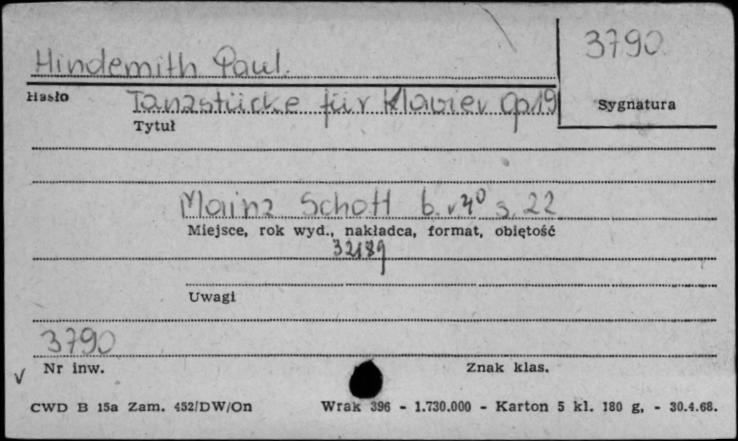 3790
Hindemith Paul.
Hasło Tanzstücke für Klavier Op 19 Sygnatura
Tytuł
Mainz Schott b.r 4° s. 22
Miejsce, rok wyd., nakładca, format, obiętość
32189
Uwagi
3790
v Nr inw. Znak klas.
CWD B 15a Zam. 452/DW/On Wrak 396 - 1.730.000 - Karton 5 kl. 180 g, - 30.4.68.